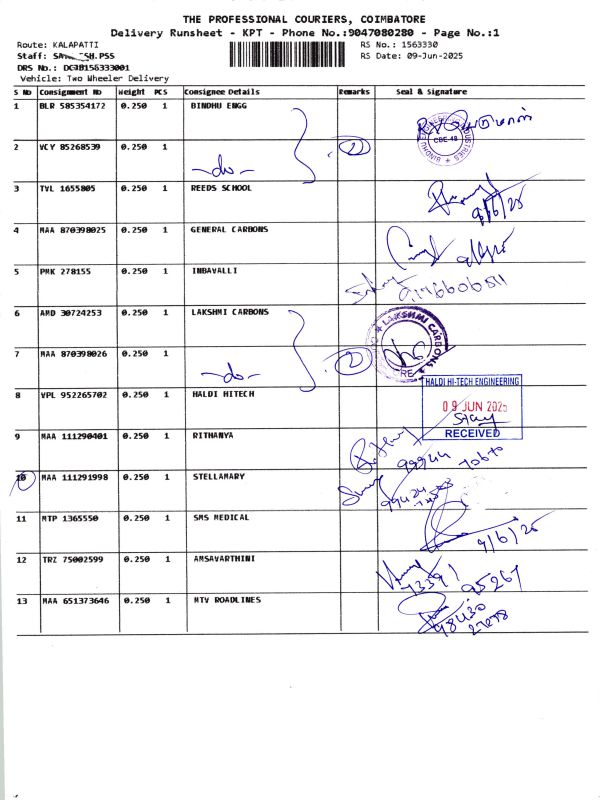 THE PROFESSIONAL COURIERS, COIMBATORE
Delivery Runsheet - KPT - Phone No.:9047080280 - Page No.:1
Route: KALAPATTI RS No.: 1563330
Staff: .PSS RS Date: 09-Jun-2025
DRS No.:
Vehicle: Two Wheeler Delivery
S No Consignment No Weight PCS Consignee Details Remarks Seal & Signature
1 BLR 585354172 0.250 1 BINDHU ENGG
CBE-48
2 VCY 85268539 0.250 1 2
-do-
3 TVL 1655805 0.250 1 REEDS SCHOOL
9/6/25
4 MAA 870398025 0.250 1 GENERAL CARBONS
5 PMK 278155 0.250 1 INBAVALLI
6 AMD 30724253 0.250 1 LAKSHMI CARBONS
LAKSHMI CARBONS
7 MAA 870398026 0.250 1 2
-do-
HALDI HI-TECH ENGINEERING
8 VPL 952265702 0.250 1 HALDI HITECH
09 JUN 2025
RECEIVED
9 MAA 111290401 0.250 1 RITHANYA
99944
10 MAA 111291998 0.250 1 STELLAMARY
99424
11 MTP 1365550 0.250 1 SMS MEDICAL
9/6/25
12 TRZ 75002599 0.250 1 AMSAVARTHINI
73391 95267
13 MAA 651373646 0.250 1 MTV ROADLINES
98430